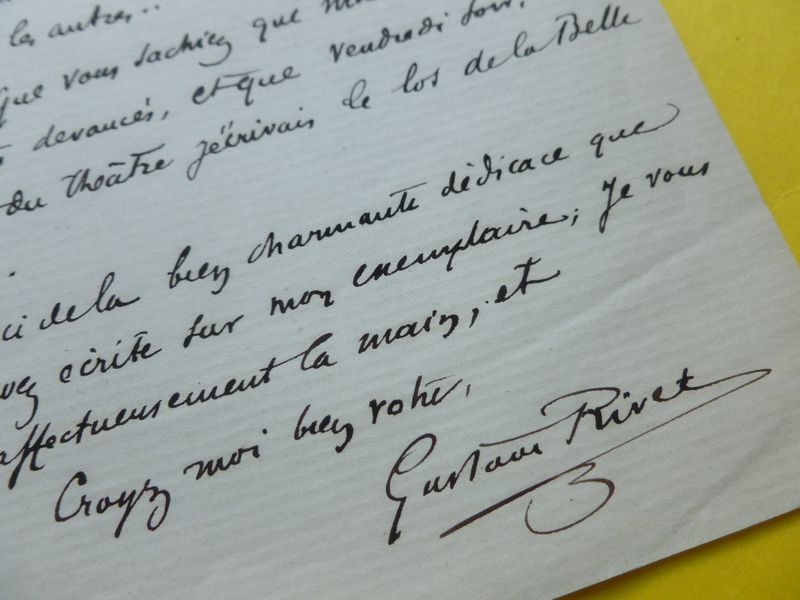 les autres..
que vous sachiez que
devancés, et que vendredi soir,
du théâtre j'écrivais le los de la Belle
ci de la bien charmante dédicace que
vez écrite sur mon exemplaire; Je vous
affectueusement la main, et
Croyez moi bien votre,
Gustave Rivet